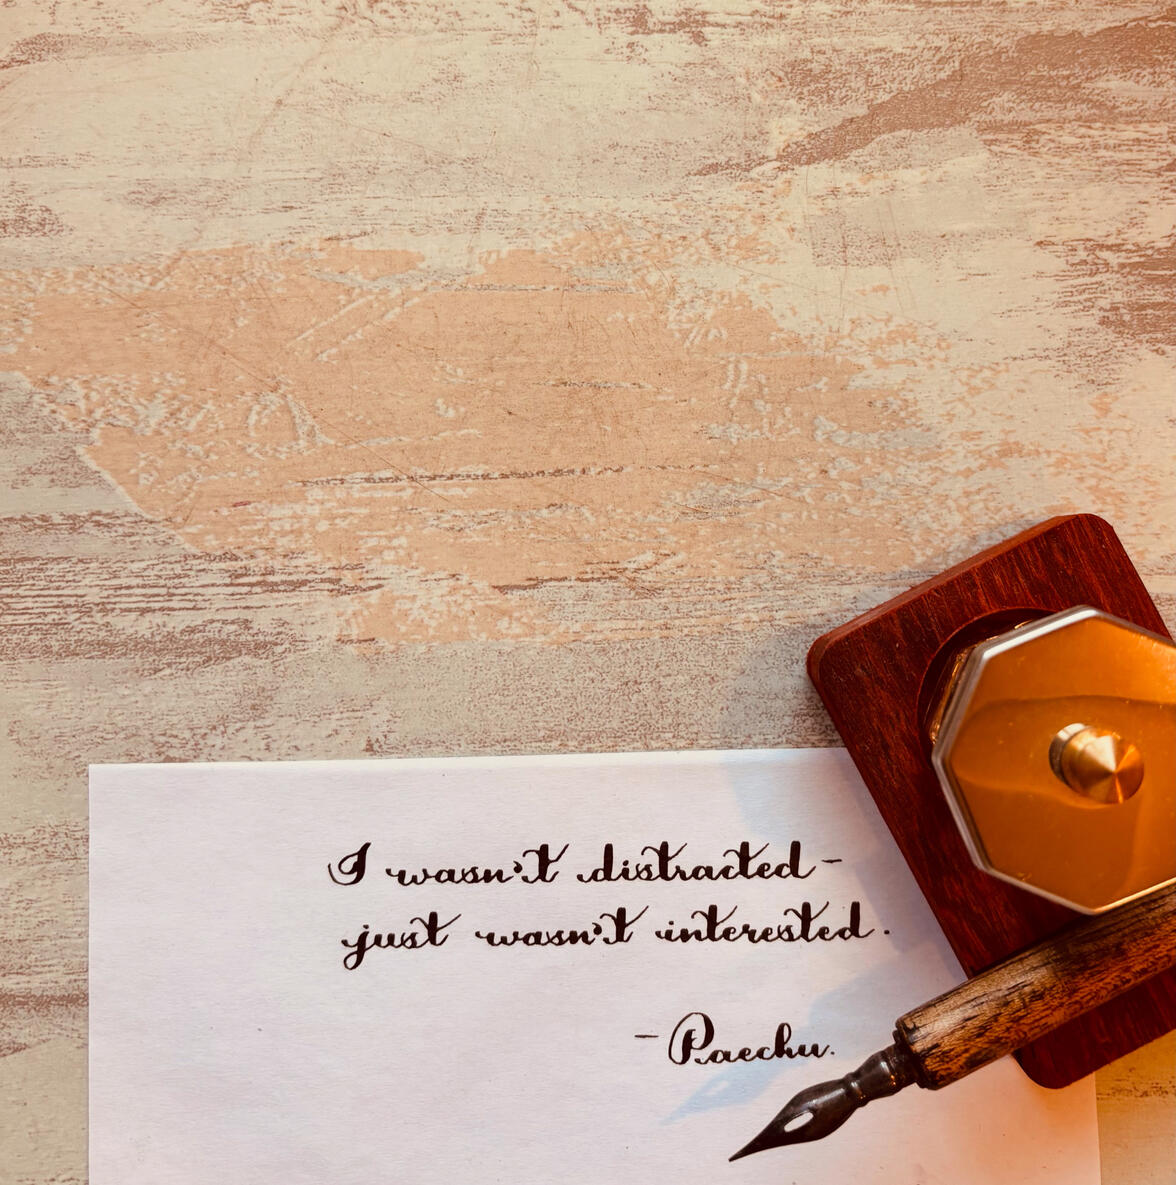 I wasn't distracted -
just wasn't interested.
- Raechu.